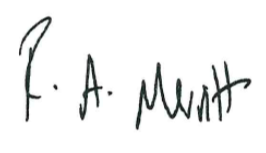 R. A. Merritt